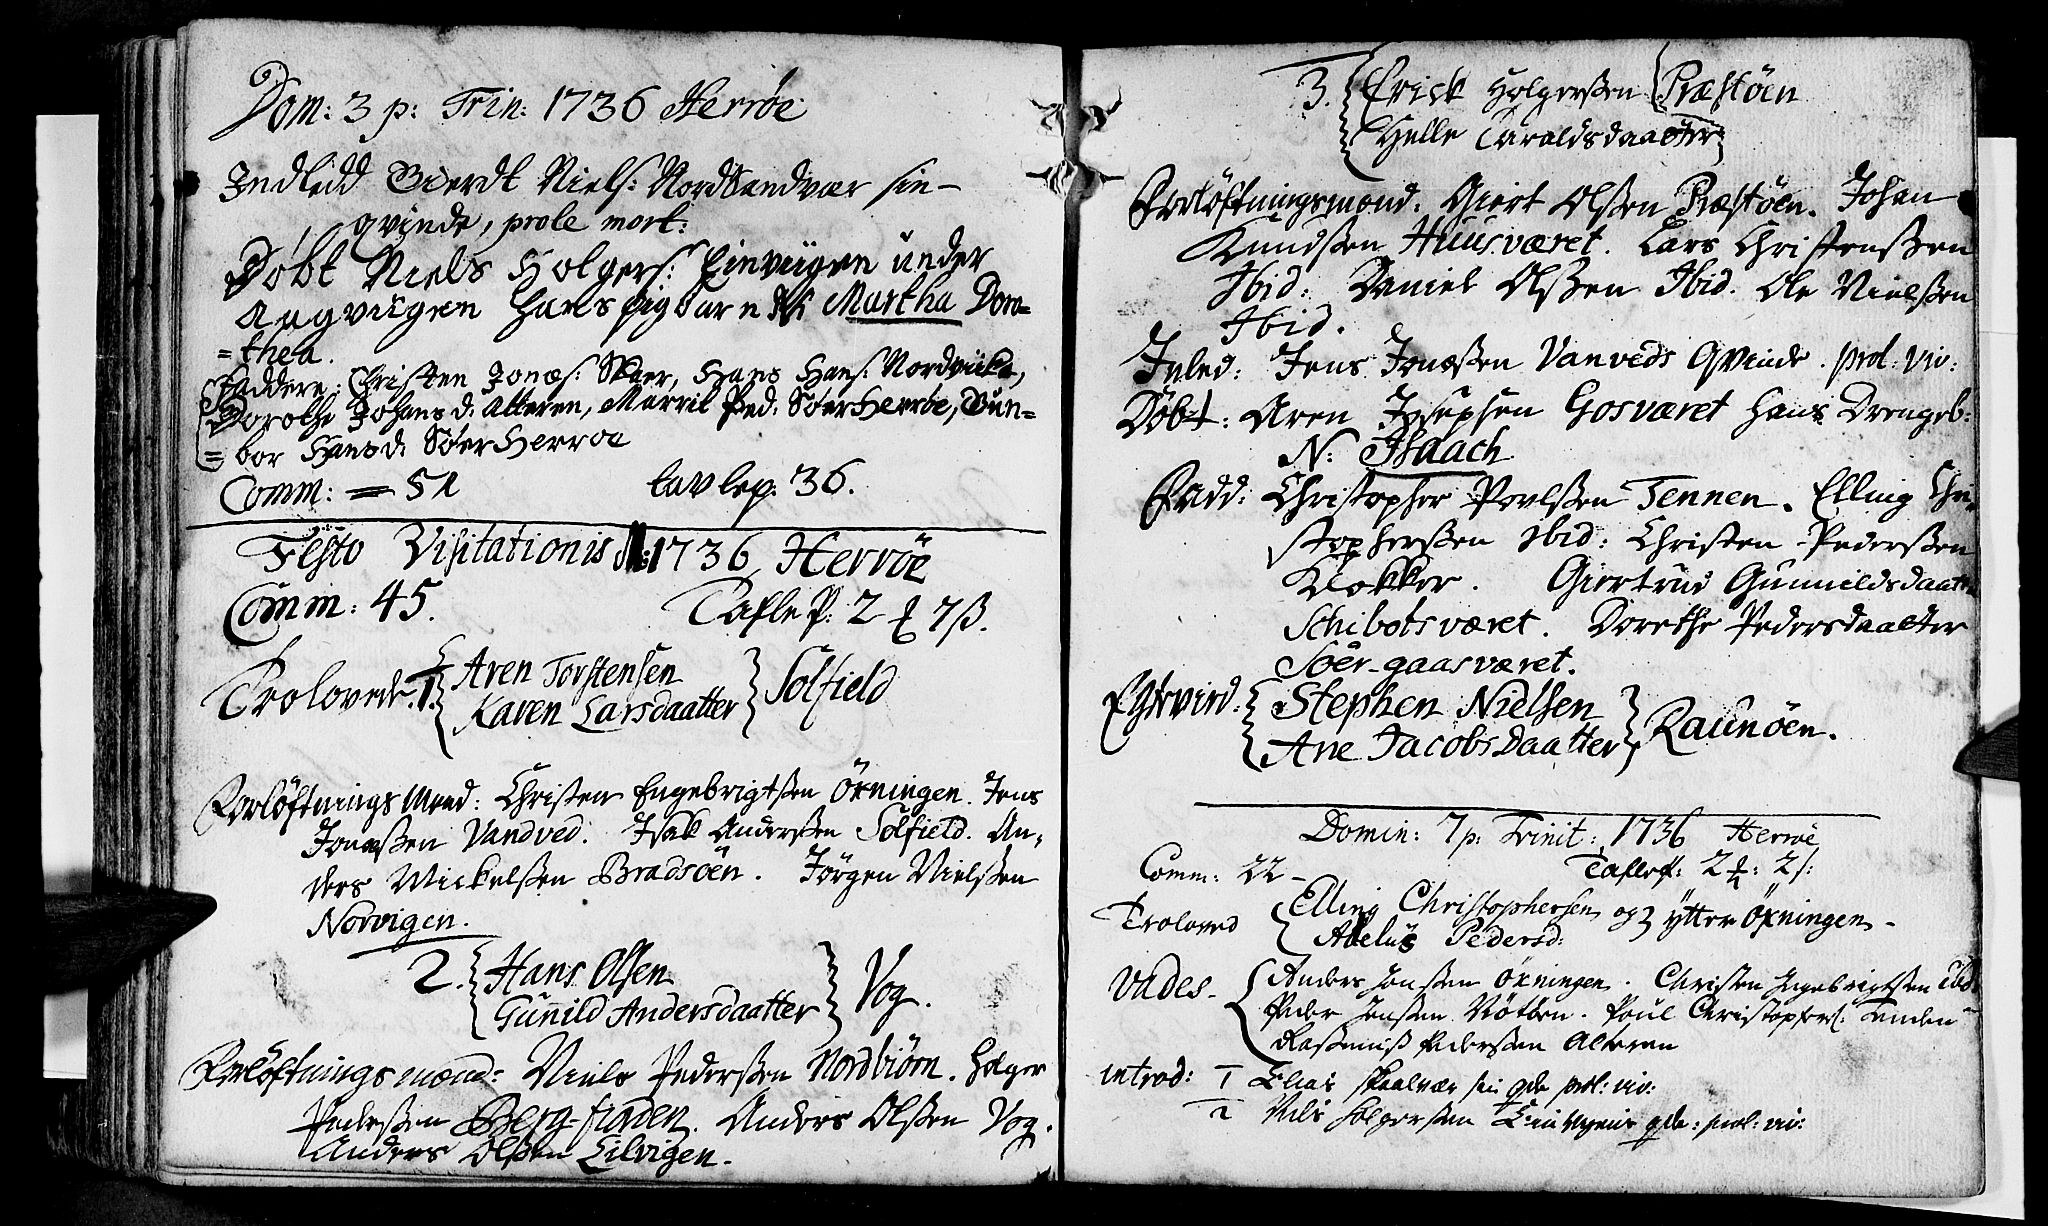 Dom: 3 p: Trin: 1736 Herrøe
Indledd Gierdt Niels: Nordsandvær sin
qvinde, prole mort:
Døbt Niels Holgers: Einviigen under
Aagviigen hans pigebarn N: Martha Doro=
=thea.
Faddere: Christen Jonæs: Skaer, Hans Hans: Nordviika,
Dorothe Johansd: Alteren, Marrit Ped: SøerHerrøe, Gun=
=bor Hansd: SøerHerrøe
Comm: = 51 tavlep: 36.
Festo Visitationis M: 1736 Herrøe
Comm: 45. Tafle P: 2 ƒ 7 ß.
Trolovede. 1. Aren Torstensen
Karen Larsdaatter Solfield
Forløftnings Mend: Christen Engebrigtßen Öxningen. Jens
Jonæßen Vandved. Isak Anderßen Solfield. An,
ders Mickelßen Bradsöen. Jörgen Nielßen
Norvigen.
2. Hans Olsen
Gunild Andersdaatter Vog.
Forløftnings mænd: Niels Pederßen Nordbiörn. Holger
Pederßen Berg-fiaden. Anders Olßen Vog.
Anders Olßen Lilvigen.
3. Erick Holgerßen Præstöen
Helle Taraldsdaatter
Forlöftningsmænd. Giert Olßen Præstöen. Johan
Knudßen Huusværet. Lars Christenßen
Ibid: Daniel Olßen Ibid. Ole Nielßen
Ibid.
Inled: Jens Jonæßen Vanveds Qvinde. prol: viv:
Döbt: Aren Josephsen Gosværet Hans Drengeb:
N: Isaach
Fadd: Christopher Povlßen Tennen. Elling Chri-
stopherßen Ibid: Christen Pederßen
Klokker. Giertrud Gunnildsdaatter
Schibotsværet. Dorethe Pedersdaatter
Söer-gaasværet.
Egtevied. Stephen Nielsen
Ane Jacobsdaatter Raunöen.
Domin: 7 p: Trinit: 1736 Herrøe
Comm: 22 - Taflep: 2 ƒ: 2 ß:
Troloved Elling Christophersen og ytter Öxningen -
Abelus Pedersd:
Vades - Anders Jonßen Öxningen. Christen Ingebrigtßen Ibd.
Peder Jonßen Nötöen. Poul Christophers: Tenden
Raßmuß Pederßen Alteren
introd: 1 Elias Skaalvær sin qde prol: viv:
2 Nils Holgerßen Einvigens qde: prol: viv: